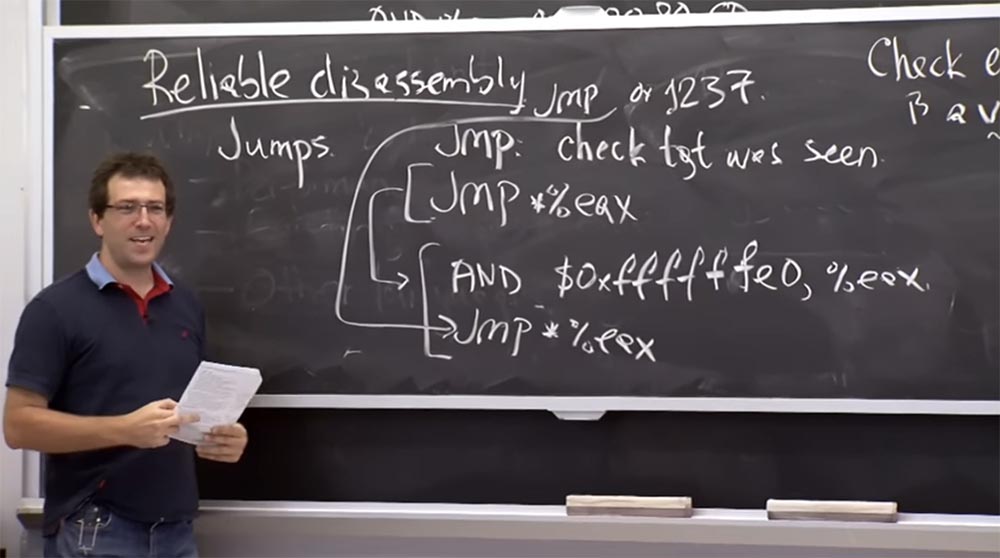 Reliable disassembly JMP or 1237.
Check
Jumps. JMP: check tgt was seen.
JMP *%eax
AND $0xffffffe0, %eax.
JMP *%eax